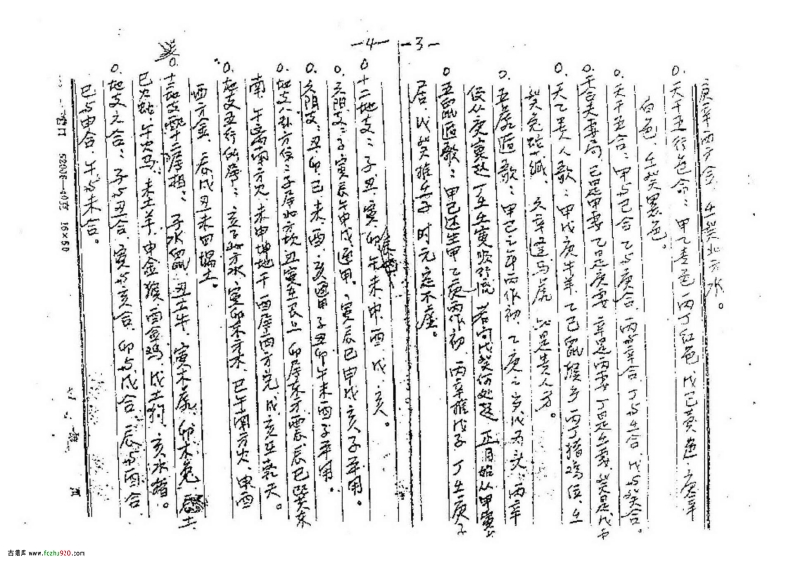 -3-
庚辛西方金,壬癸北方水。
0.天干五行色合:甲乙青色 丙丁红色 戊己黄色 庚辛
白色,壬癸黑色。
0.天干五合:甲与己合 乙与庚合,丙与辛合 丁与壬合 戊与癸合。
0.干合夫妻局 己是甲妻 乙是庚妻 辛是丙妻 丁是壬妻 癸是戊妻
0.天乙贵人歌:甲戊庚牛羊,乙己鼠猴乡 丙丁猪鸡位 壬
癸兔蛇藏,六辛逢马虎,此是贵人方。
0.五虎遁歌:甲己之年丙作初,乙庚之岁戊为头,丙辛
便从庚寅起 丁壬壬寅顺行流 若问戊癸何处起 正月始从甲寅
0.五鼠遁歌:甲己还生甲 乙庚丙作初 丙辛推戊子 丁壬庚子
居,戊癸 壬子 时元定不虚。
-4-
0.十二地支:子丑寅卯辰巳午未申酉戌亥。
0.六阳支:子寅辰午申戌 用:寅辰巳申戌亥 用。
0.六阴支:丑卯巳未酉亥 用 子丑卯午未酉 用。
0.地支八卦方位:子居北方坎 丑寅东 卯居东方震 辰巳巽东
南 午离南方火 未申坤地 酉居西方兑 戌亥 乾天。
0.地支五行 :亥子北方水,寅卯东方木,巳午南方火 申酉
西方金,辰戌丑未四 土。
0.十二地支配十二属相:子水鼠 丑土牛 寅木虎 卯木兔 辰土
巳火蛇 午火马 未土羊 申金猴 酉金鸡 戌土狗 亥水猪。
0.地支六合:子与丑合 寅与亥合 卯与戌合 辰与酉合
巳与申合 午与未合。
16×50
古易库 www.fozhu920.com